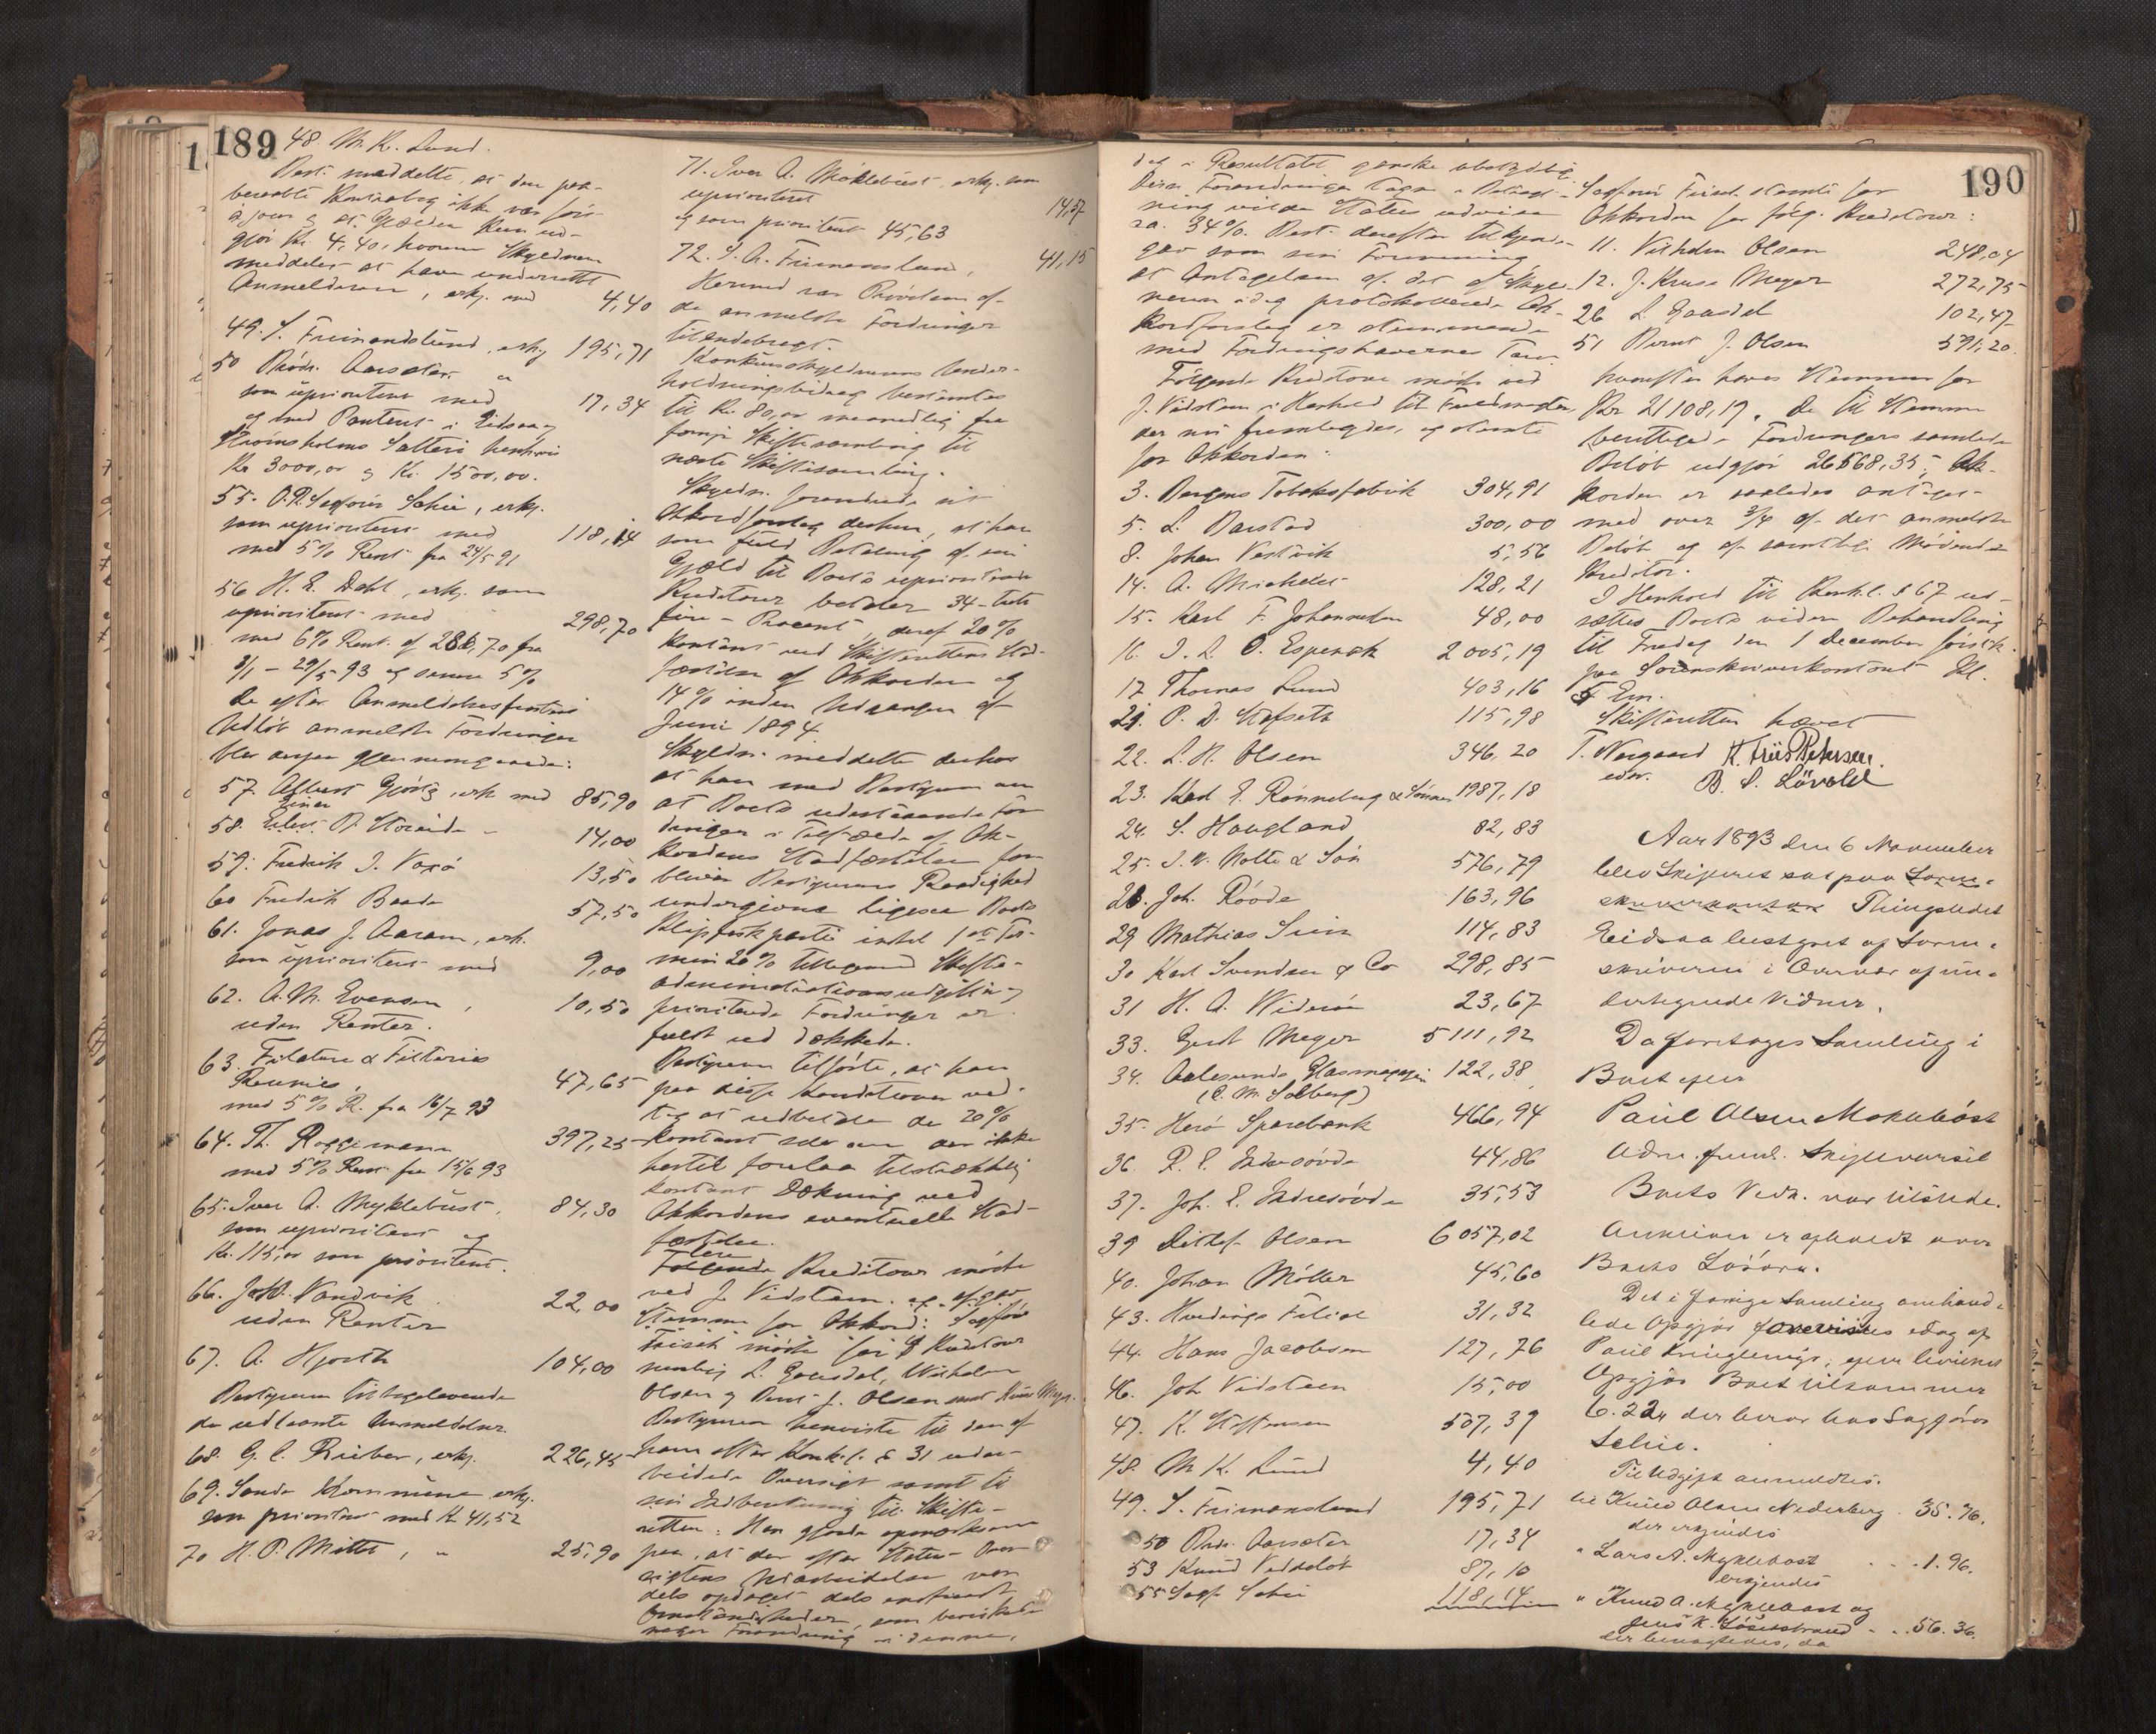 189
48. M. K. Lund.
Best. meddelte, at den paa-
beraabte Kontrabog ikke var
og at Gjælden kun ud-
gjør Kr. 4,40, hvorom Skyldneren
meddeles at have underrettet
Anmelderen, erkj. med 4,40
49. S. Frimandslund, erkj. 195,71
50 Brødr. Aarsæter "
som uprioritert med 17,34
og med Panteret i Eidsaa og
Strømsholms Salteri henhvis
Kr 3000,00 og Kr. 1500,00.
55. O.R. Sagfører Schie, erkj.
som uprioritert med 118,14
med 5% Rent. fra 24/5 91
56 H. E. Dahl, erkj. som
uprioritert med 298,70
med 6% Rent. af 286,70 fra
9/1 - 29/5 93 og senere 5%
De efter Anmeldelsesfristens
Udløb anmeldte Fordringer
blev derpaa gjennemgaaede:
57. Albert Gjørtz, erk. med 85,90
58. Einer 14,00
59. Fredrik I. Voxø 13,50
60 Fredrik Baade 57,50
61. Jonas J. Aaram, erk.
som uprioritert med 9,00
62. A. M. Evensen, 10,50
uden Renter.
63. Filature & Filteries
Reunies, 47,65
med 5% R. fra 16/7 93
64. Th. Roggemann 397,25
med 5% Rent fra 15/6 93
65. Iver A. Myklebust, 84,30
som uprioritert og
Kr. 115,00 som prioritert.
66. Vandvik 22,00
uden Renter
67. A. Hjorth 104,00
Bestyreren tilbageleverede
de udlaante Anmeldelser.
68. G. C. Rieber, erkj. 226,45
69. Sande Kommune erkj.
som prioritert med Kr 41,52
70 H. P. " 25,90
71. Iver A. Möklebust, erkj. som
uprioritert 14,57
og som prioritert 45,63
72. S. A. Frimanslund, 41,15
Hermed var Prövelsen af
de anmeldte Fordringer
tilendebragt.
Konkursskyldnerens Under-
holdningsbidrag bestemtes
til Kr. 80,00 maanedlig fra
forrige Skiftesamling til
næste Skiftesamling.
Skyldn. forandrede sit
Akkordforslag derhen, at han
som fuld Betaling af sin
Gjæld til Boets uprioriterede
Kreditorer betaler 34 - tretti
fire - Procent, deraf 20%
kontant ved Skifterettens Stad-
fæstelse af Akkorden og
14% inden Udgangen af
Juni 1894
Skyldn. meddelte derhos
at han med Bestyreren
at Boets udestaaende For-
dringer i Tilfælde af Ak-
kordens Stadfæstelse for-
bliver Bestyrerens Raadighed
undergivne ligesaa Boets
Klipfiskparti indtil
20% tillegemed Skifte-
administrationsudgifter og
prioriterede Fordringer er
fuldt ud dækkede.
Bestyreren tilførte, at han
paa disse Konditioner ved-
tog at udbetale de 20%
kontant selv om der ikke
hertil forelaa tilstrækkelig
kontant Dækning ved
Akkordens eventuelle Stad-
fæstelse.
Flere
Følgende Kreditorer mødte
ved J. Vidsteen og afgav
Stemme for Akkord: Sagfør
Friisch mødte for 4 Kreditorer
nemlig L. Gaasdal, Wilhelm
Olsen og Bernt J. Olsen samt Kruse Meyer.
Bestyreren henviste til den af
ham efter Konk.l. § 31 udar-
beidede Oversigt samt til
sin Indberetning til Skifte-
retten: Han gjorde opmærksom
paa, at der efter Status-Over-
sigtens Udarbeidelse var
dels opdaget dels indtraadt
Omstændigheder, som bevirkede
nogen Forandring i denne,
190
dog i Resultatet ganske ubetydelig
Disse Forandringer tagne i Betragt-
ning vilde Status udvise
ca. 34%. Best. derefter tilkjende-
gav som sin Formening
at Antagelsen af det af Skyld-
neren idag protokollerede Ak-
kordforslag er stemmende
med Fordringshavernes Tarv.
Følgende Kreditorer mødte ved
J. Vidsteen i Henhold til Fuldmagter,
der nu fremlagdes, og stemte
for Akkorden:
3. Bergens Tobaksfabrik 304,91
5. L. Barstad 300,00
8. Johan Vestvik 5,56
14. A. Michelet 128,21
15. Karl F. Johannesen 48,00
16. J. L. O. Espenæk 2005,19
17 Thomas Lund 403,16
21. P. D. Stafseth 115,98
22. L. N. Olsen 346,20
23. Karl E. Rønneberg & Sønner 1987,18
24. S. Haugland 82,83
25. J. W. Nolte & Søn 576,79
28. Joh. Rövde 163,96
29 Mathias 114,83
30 Karl Svendsen & Co 298,85
31 H. A. Widerøe 23,67
33. Gerdt Meyer 5111,92
34. Aalesunds Glasmagasin 122,38
(C. M. Solberg)
35. Herø Sparebank 466,94
36. P. E. Indresøvde 44,86
37. Joh. E. Indresøvde 35,53
39 Ditlef Olsen 6057,02
40. Johan Møller 45,60
43. Hardings Filial 31,32
44. Hans Jacobsen 127,76
46. Joh Vidsteen 15,00
47. K. Steffensen 507,39
48. M K. Lund 4,40
49. S. Frimanslund 195,71
50 Brdr. Aarsæter 17,34
53 Knud Veddeløt 87,10
55 Sagf. Schie 118,14
Sagfører Friisch stemte for
Akkorden for følg. Kreditorer:
11. Vilhelm Olsen 248,04
12. J. Kruse Meyer 272,75
26 L Gaasdal 102,47
51 Bernt J. Olsen 591,20
hvorefter haves Stemmer for
Kr 21108,19. De til Stemme
berettigede Fordringers samlede
Beløb udgjør 26568,35. Ak-
korden er saaledes antaget
med over 3/4 af det anmeldte
Beløb og af samtlige mødende
Kreditor.
I Henhold til Konk.l. § 67 ud-
sættes Boets videre Behandling
til Fredag den 1 December førstk.
paa Sorenskriverkontoret Kl.
Em.
Skifteretten hævet
T. Nergaard K. Friis Petersen.
edsv. B. S. Lövold
Aar 1893 den 6 November
blev Skifteret sat paa Soren-
skriverkontor Thingstedet
Eidsaa bestyret af Soren-
skriveren i Overvær af un-
dertegnede Vidner.
Da foretoges Samling i
Boet efter
Paul Olsen Mokleböst
Adm. freml. Skiftevarsel
Boets Vedk. var tilstede.
Auktion er afholdt over
Boets Løsøre.
Det i forrige Samling omhand-
lede Opgjør forevistes idag af
Paul Kringlevigs, efter hvilket
Opgjør Boet tilkommer
6. 22, der beror hos Sagfører
Schie.
Til Udgift anmeldtes.
til Knud Olsen Nederberg . 35. 76.
der erkjendes
" Lars A. Myklebost . . . 1. 96.
erkjendes
" Knud A. Myklebost og
Jens K. Løsetstrand . . . 56. 36.
der benegtedes, da